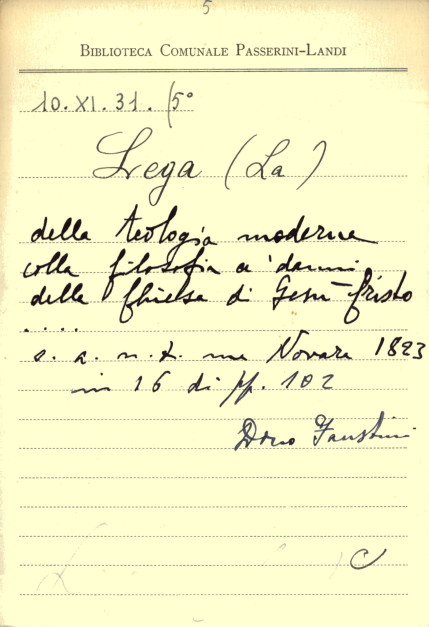 5
BIBLIOTECA COMUNALE PASSERINI-LANDI
10.XI.31. (5°
Lega (La)
della teologia moderna
colla filosofia a' danni
della Chiesa di Gesù-Cristo
....
s. a. n. t. ma Novara 1823
in 16 di pp. 102
Dono Faustini
C